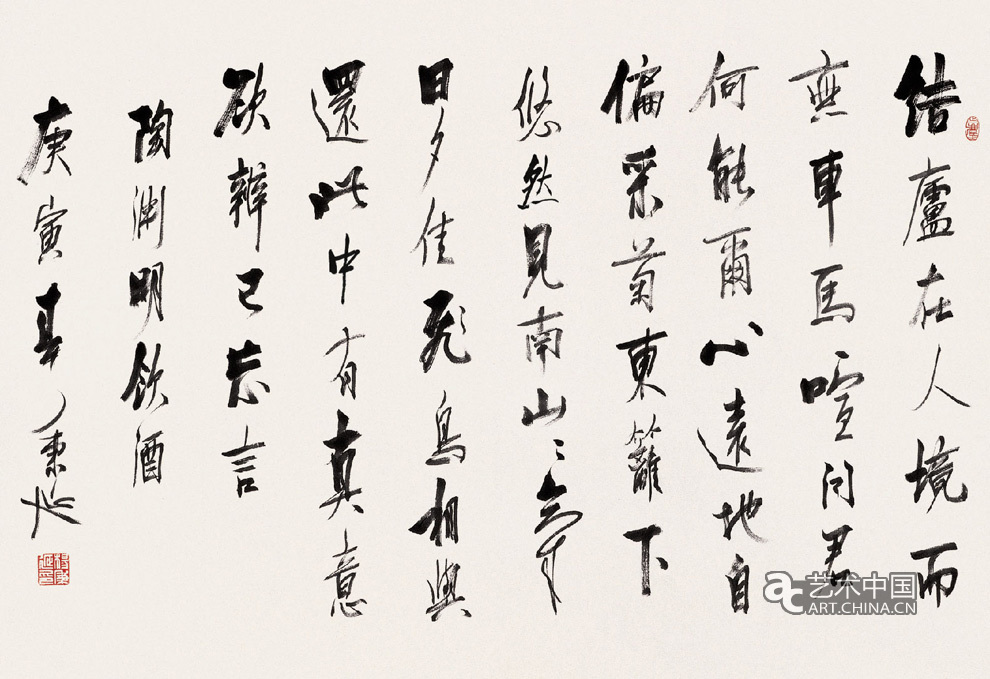 結廬在人境而
無車馬喧問君
何能爾心遠地自
偏采菊東籬下
悠然見南山〻氣
日夕佳飛鳥相與
還此中有真意
欲辨已忘言
陶淵明飲酒
庚寅春
ac 艺术中国
ART.CHINA.CN